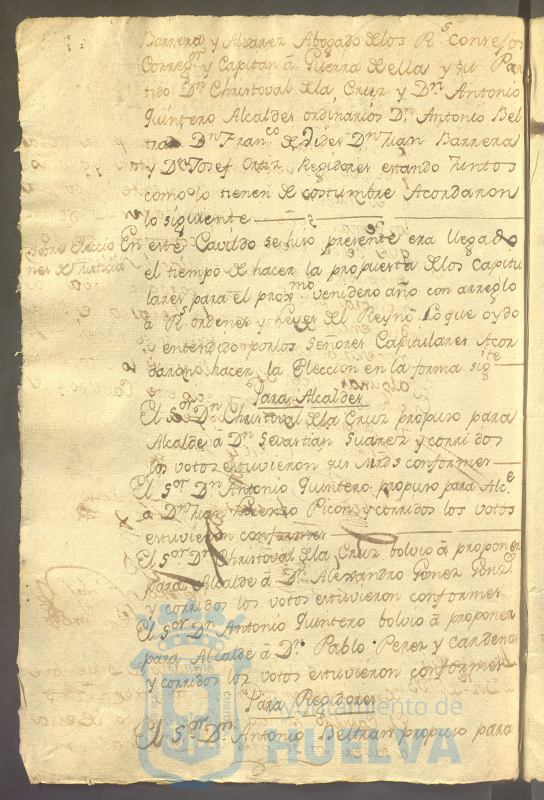 Barrera y Alvarez Abogado de los Rs. Consejos
Corregor. y Capitan â Guerra de ella y su Par
tido Dn. Christoval de la Cruz y Dn. Antonio
Quintero Alcaldes ordinarios Dn. Antonio Bel
tran Dn. Franco. de Dn. Juan Barrera
y Dn. Josef Ortiz Regidores estando Juntos
como lo tienen de costumbre Acordaron
lo siguiente
Sobre Eleccio
nes de Justicia
En este Cavildo se hiso presente era llegado
el tiempo de hacer la propuesta de los Capitu
lares para el proxmo. venidero año con arreglo
â Rs. ordenes y Leyes del Reyno Lo que oydo
y entendido por los Señores Capitulares Acor
daron hacer la Eleccion en la forma sigte.
Para Alcaldes
El Sor. Dn. Christoval de la Cruz propuso para
Alcalde â Dn. Sevastian Suarez y corridos
los votos estuvieron sus Mrds conformes
El Sor. Dn. Antonio Quintero propuso para Alce.
a Dn. Juan Lorenzo Picon y corridos los votos
estuvieron conformes
El Sor. Dn. Christoval de la Cruz bolvio â proponer
para Alcalde â Dn. Alexandro Gomez
y corridos los votos estuvieron conformes
El Sor. Dn. Antonio Quintero bolvio â proponer
para Alcalde â Dn. Pablo Perez y Cardenas
y corridos los votos estuvieron conformes
Para Regidores
El Sor. Dn. Antonio Beltran propuso para
Ayuntamiento de
HUELVA